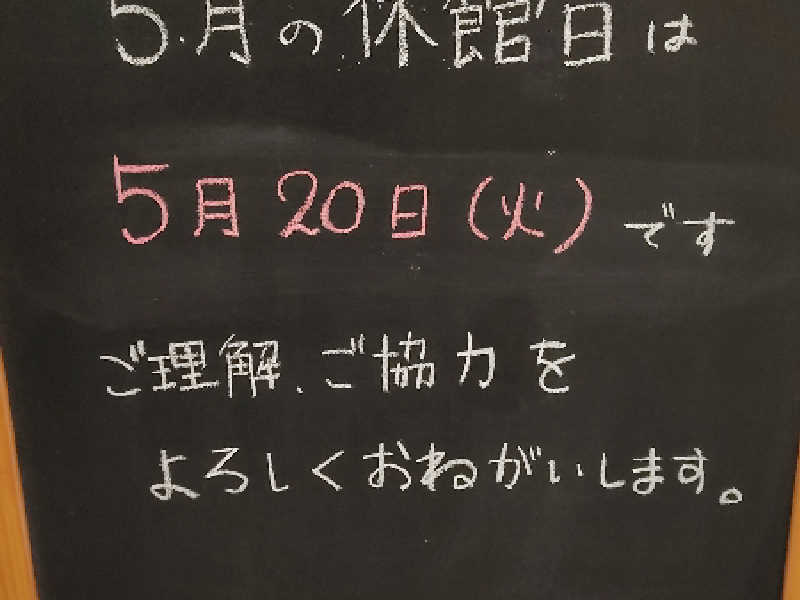 5月の休館日は
5月20日(火)です
ご理解、ご協力を
よろしくおねがいします。